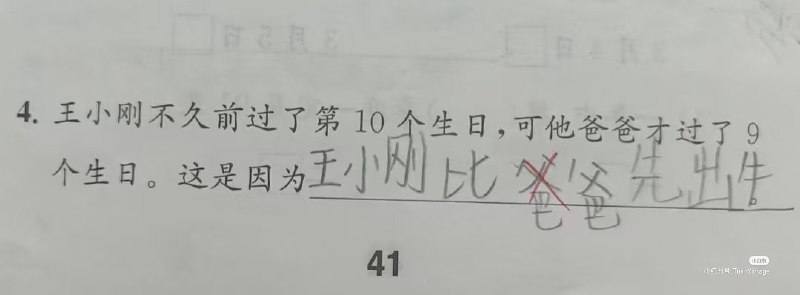 4. 王小刚不久前过了第 10 个生日，可他爸爸才过了 9
个生日。这是因为王小刚比爸爸先出生。
41
小红书